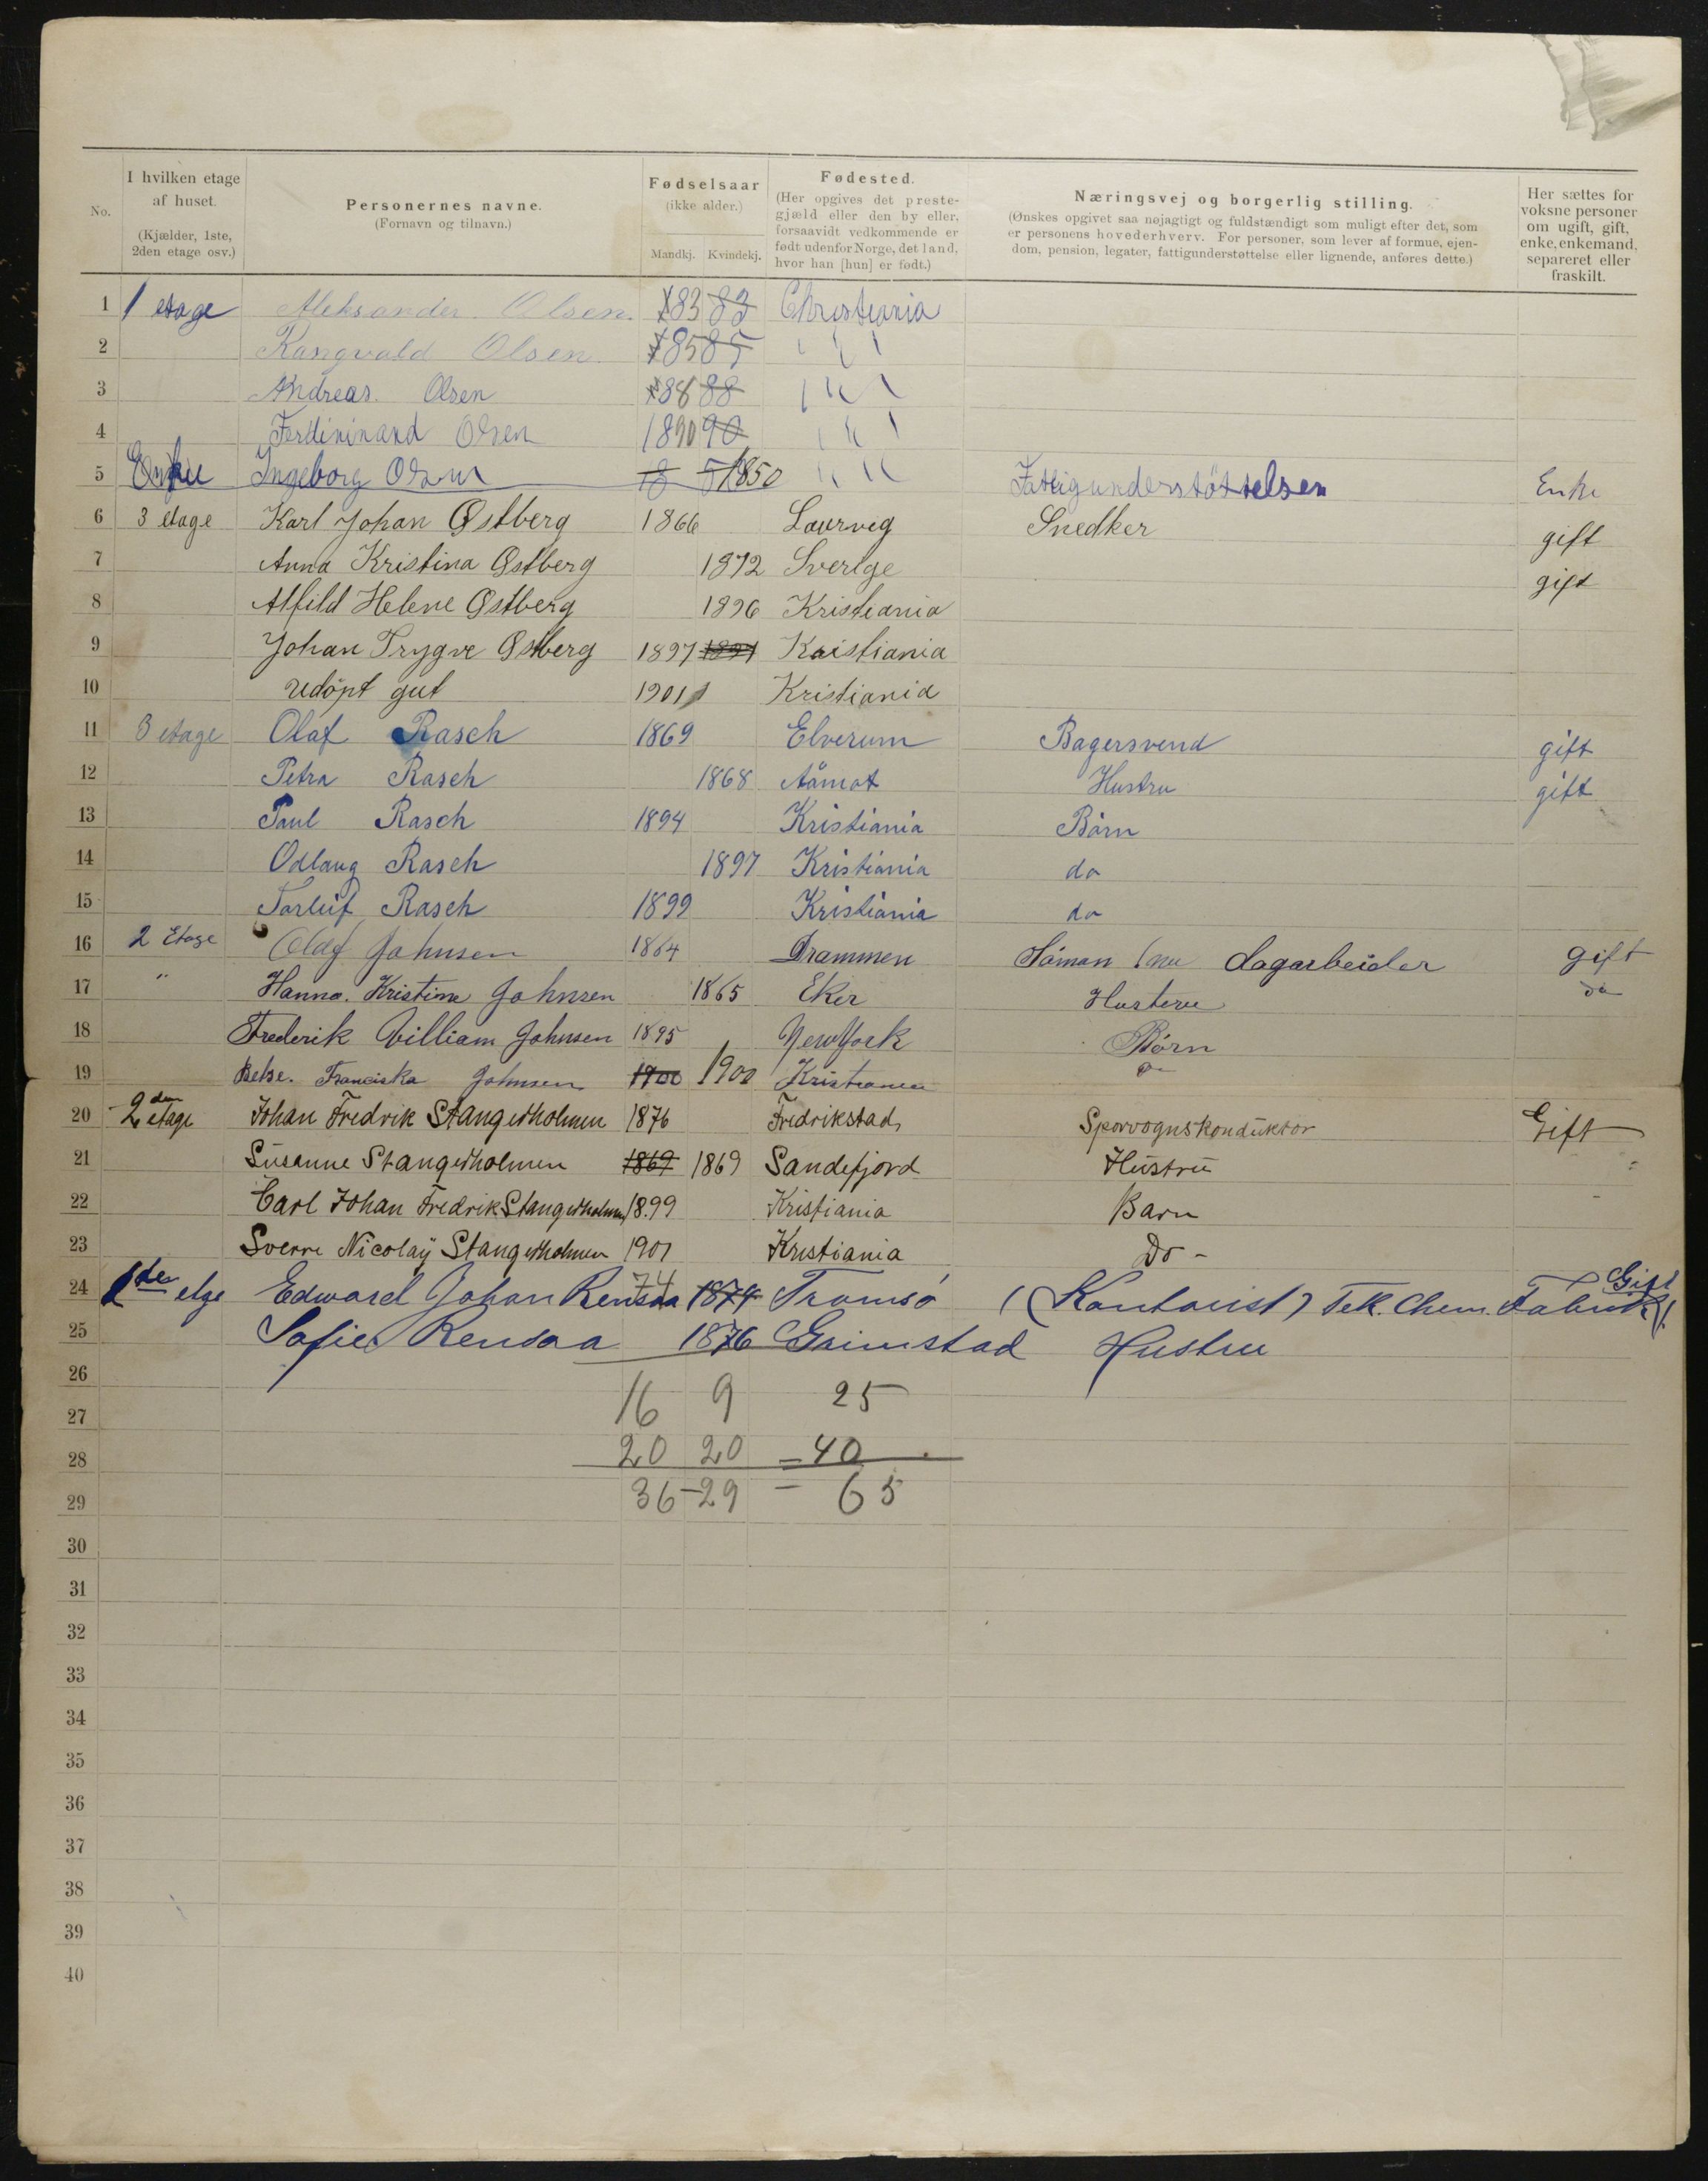 No.
I hvilken etage af huset. (Kjælder, 1ste, 2den etage osv.)
Personernes navne. (Fornavn og tilnavn.)
Fødselsaar (ikke alder.) Mandkj. Kvindekj.
Fødested. (Her opgives det prestegjæld eller den by eller, forsaavidt vedkommende er født udenfor Norge, det land, hvor han [hun] er født.)
Næringsvej og borgerlig stilling. (Ønskes opgivet saa nøjagtigt og fuldstændigt som muligt efter det, som er personens hovederhverv. For personer, som lever af formue, ejendom, pension, legater, fattigunderstøttelse eller lignende, anføres dette.)
Her sættes for voksne personer om ugift, gift, enke, enkemand, separeret eller fraskilt.
1 1 etage Aleksander Olsen. 83 83 Christiania
2 Rangvald Olsen 85 85 " " "
3 Andreas Olsen 88 88 " " "
4 Ferdininand Olsen 1890 90 " " "
5 Enke Ingeborg Olsen 1850 " " Fattigunderstøttelsen Enke
6 3 etage Karl Johan Østberg 1866 Laurvig Snedker gift
7 Anna Kristina Østberg 1872 Sverige gift
8 Alfild Helene Østberg 1896 Kristiania
9 Johan Trygve Østberg 1897 1897 Kristiania
10 Udöpt gut 1901 Kristiania
11 3 etage Olaf Rasch 1869 Elverum Bagersvend gift
12 Petra Rasch 1868 Aamot Hustru gift
13 Paul Rasch 1894 Kristiania Børn
14 Odlaug Rasch 1897 Kristiania do
15 Torleif Rasch 1899 Kristiania do
16 2 Etage Olaf Johnsen 1864 Drammen Söman (nu dagarbeider gift
17 " Hanna. Kristine Johnsen 1865 Eker Hustru do
18 Frederik Villiam Johnsen 1895 New York Børn
19 Franciska Johnsen 1900 1900 Kristiania do
20 2den etage Johan Fredrik Stangerholmen 1876 Fredrikstad, Sporvognskonduktør Gift
21 Susanne Stangerholmen 1869 1869 Sandefjord Hustru "
22 Carl Johan Fredrik Stangerholmen 1899 Kristiania Barn
23 Sverre Nicolaÿ Stangerholmen 1901 Kristiania Do -
24 1ste etge Edward Johan Rensaa 74 1874 Tromsø (Kontorist) Tek. Chem. Fabrik). Gift
25 Sofie Rensaa 1876 Grimstad Hustru
26
16 9 25
27
20 20 = 40
28
36 - 29 - 65
29
30
31
32
33
34
35
36
37
38
39
40